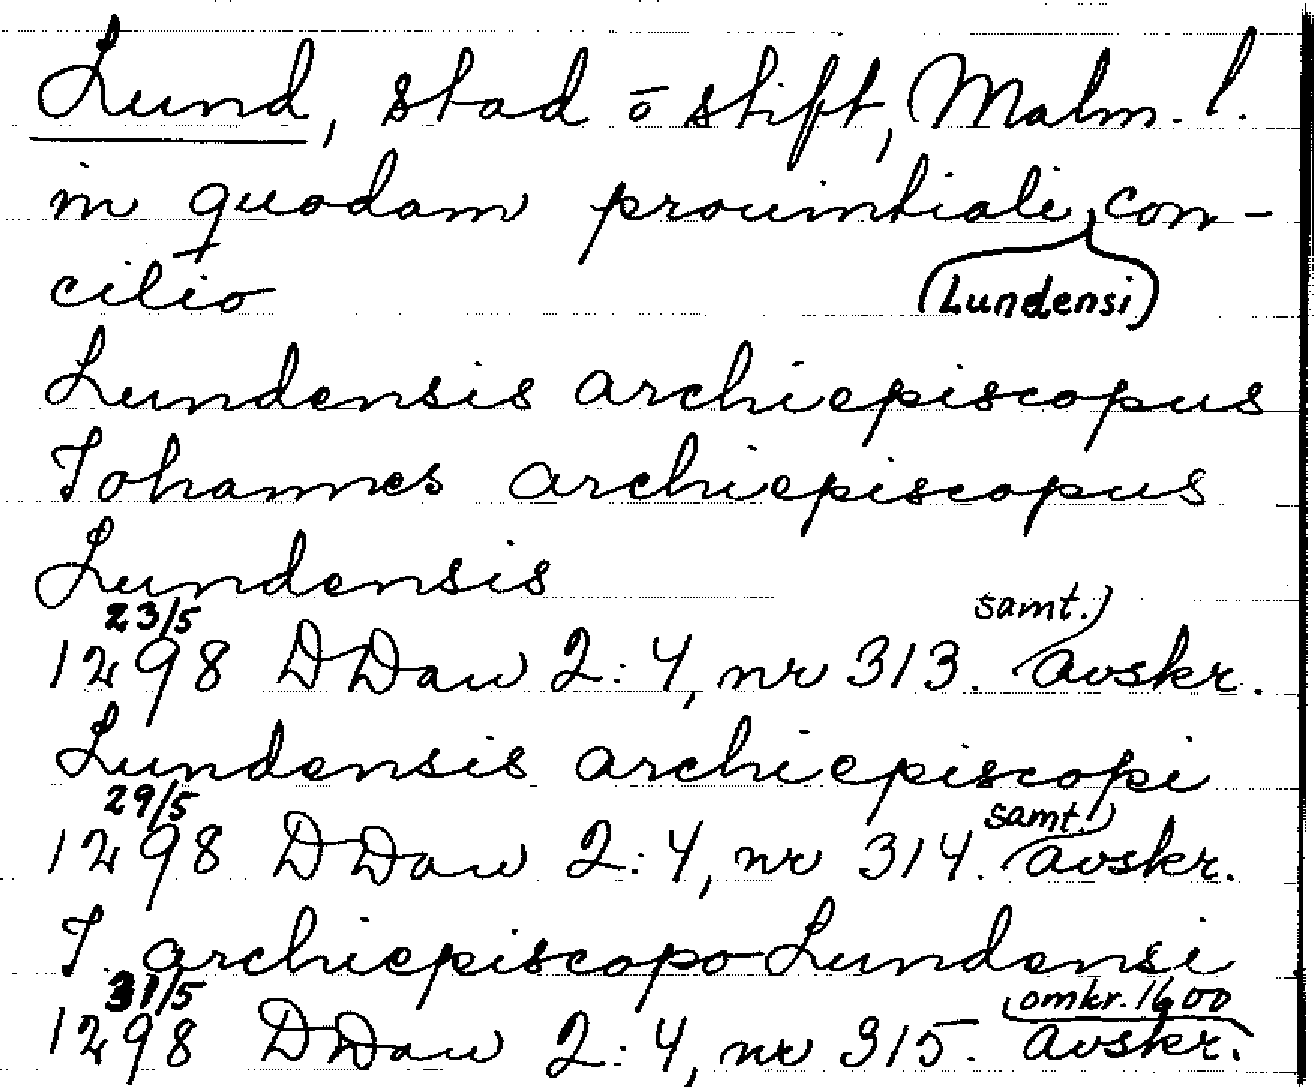 Lund, stad o stift, Malm. l.
in quodam prouintiali con-
cilio (Lundensi)
Lundensis archiepiscopus
Iohannes archiepiscopus
Lundensis
23/5 samt.
1298 DDan 2:4, nr 313. avskr.
Lundensis archiepiscopi
29/5 samt.
1298 DDan 2:4, nr 314. avskr.
I. archiepiscopo Lundensi
31/5 omkr. 1600
1298 DDan 2:4, nr 315. avskr.